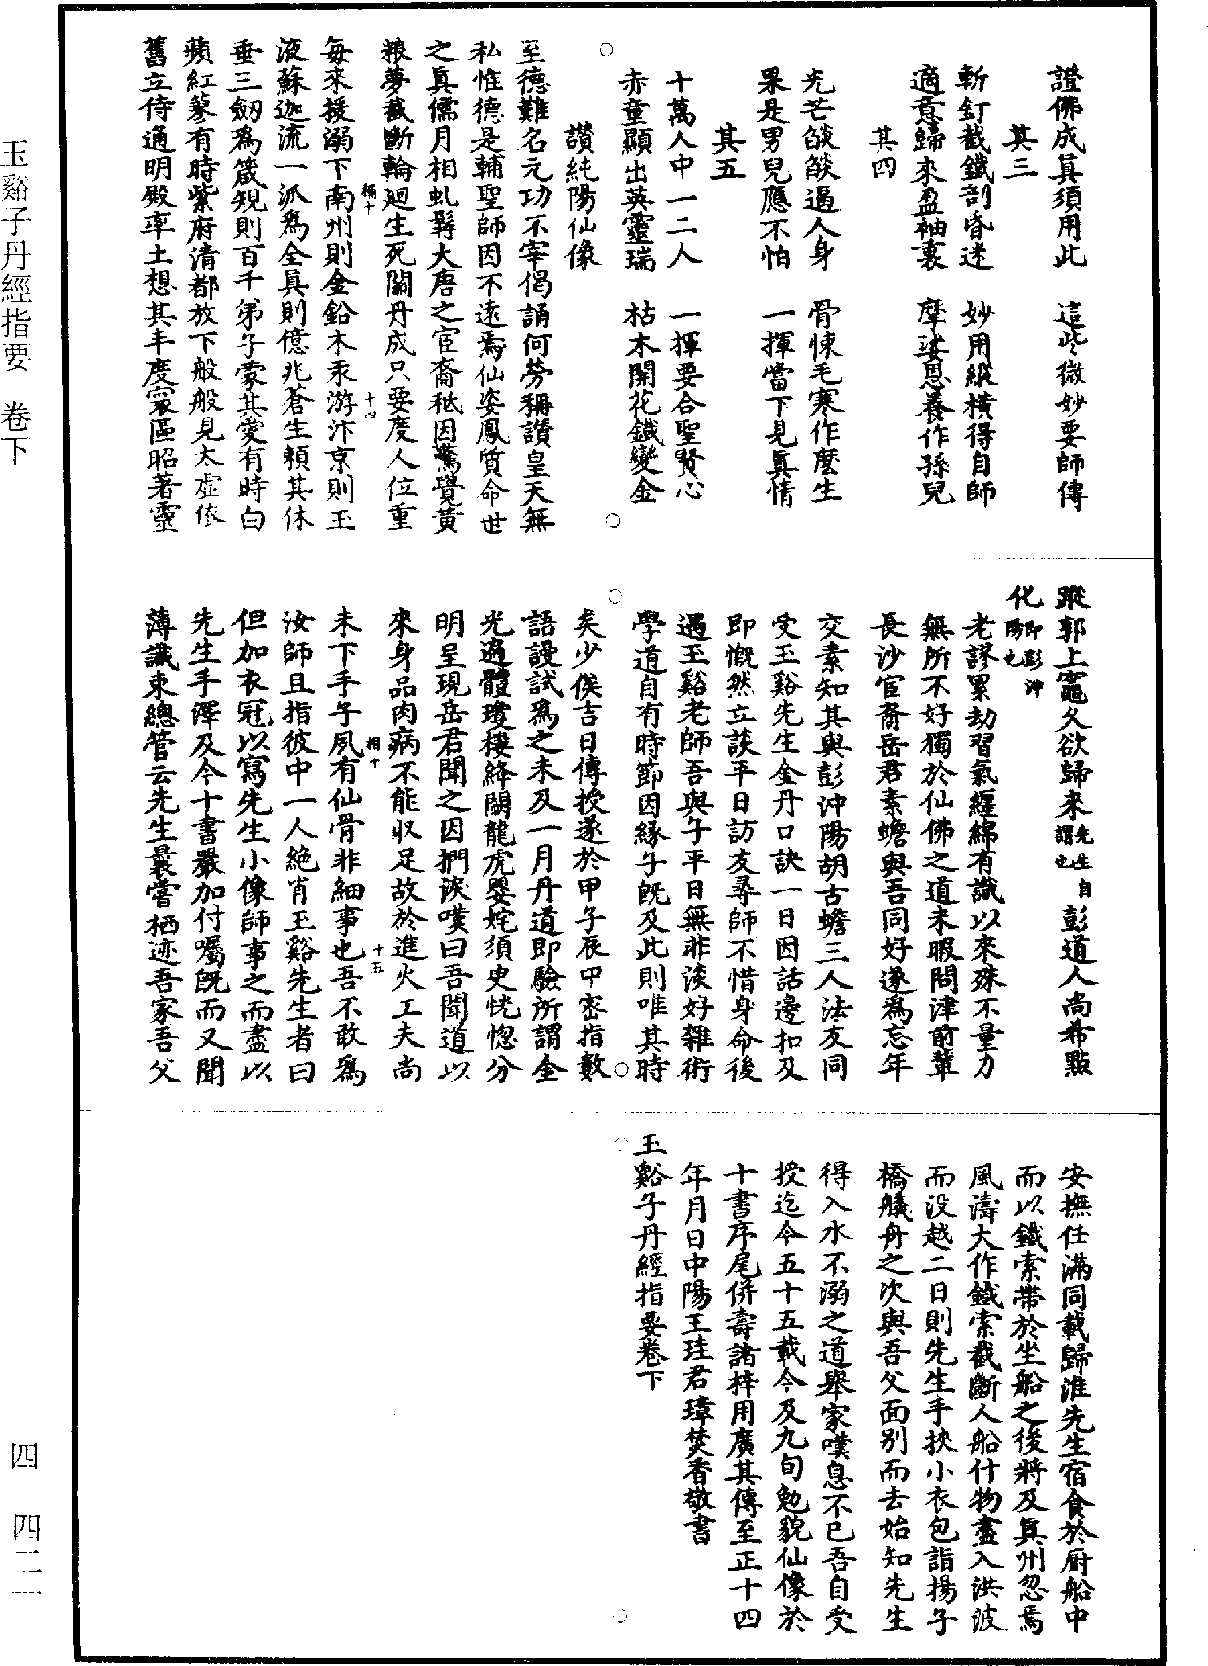 證佛成真須用此　這些微妙要師傳
其三
斬釘截鐵剖昏迷　妙用縱橫得自師
適意歸來盈袖裏　摩挲恩養作孫兒
其四
光芒燄燄逼人身　骨悚毛寒作麼生
果是男兒應不怕　一揮當下見真情
其五
十萬人中一二人　一揮要合聖賢心
赤童顯出英靈瑞　枯木開花鐵變金
讚純陽仙像
至德難名元功不宰偈誦何勞稱讚皇天無
私惟德是輔聖師因不遠焉仙姿鳳質命世
之真儒月相虬髯大唐之宦裔秪因驚覺黃
粮夢截斷輪廻生死關丹成只要度人位重
稱十　十四
每來援溺下南州則金鉛木汞游汴京則玉
液蘇迦流一派為全真則億兆蒼生賴其休
垂三劒為箴規則百千弟子蒙其愛有時白
蘋紅蓼有時紫府清都放下般般見太虛依
舊立侍通明殿率土想其丰度寰區昭著靈
蹤郭上竈久欲歸來先生自謂也彭道人尚希點
化即彭沖陽也
老謬累劫習氣纏綿有識以來殊不量力
無所不好獨於仙佛之道未暇問津前輩
長沙宦裔岳君素蟾與吾同好遂為忘年
交素知其與彭沖陽胡古蟾三人法友同
受玉谿先生金丹口訣一日因話邊扣及
即慨然立談平日訪友尋師不惜身命後
遇玉谿老師吾與子平日無非談好雜術
學道自有時節因緣子既及此則唯其時
矣少俟吉日傳授遂於甲子辰中密指數
語謾試為之未及一月丹道即驗所謂金
光遍體瓊樓絳闕龍虎嬰姹須史恍惚分
明呈現岳君聞之因捫淚嘆曰吾聞道以
來身品肉病不能收足故於進火工夫尚
相十　十五
未下手子夙有仙骨非細事也吾不敢為
汝師且指彼中一人絶肖玉谿先生者曰
但加衣冠以寫先生小像師事之而盡以
先生手澤及今十書嚴加付囑既而又聞
薄識束總管云先生曩嘗栖迹吾家吾父
安撫任滿同載歸淮先生宿食於厨船中
而以鐵索帶於坐船之後將及真州忽焉
風濤大作鐵索截斷人船什物盡入洪波
而没越二日則先生手挾小衣包詣揚子
橋艤舟之次與吾父面别而去始知先生
得入水不溺之道舉家嘆息不已吾自受
授迄今五十五載今及九旬勉貌仙像於
十書序尾併壽諸梓用廣其傳至正十四
年月日中陽王珪君璋焚香敬書
玉谿子丹經指要卷下
玉谿子丹經指要　卷下
四　四二二